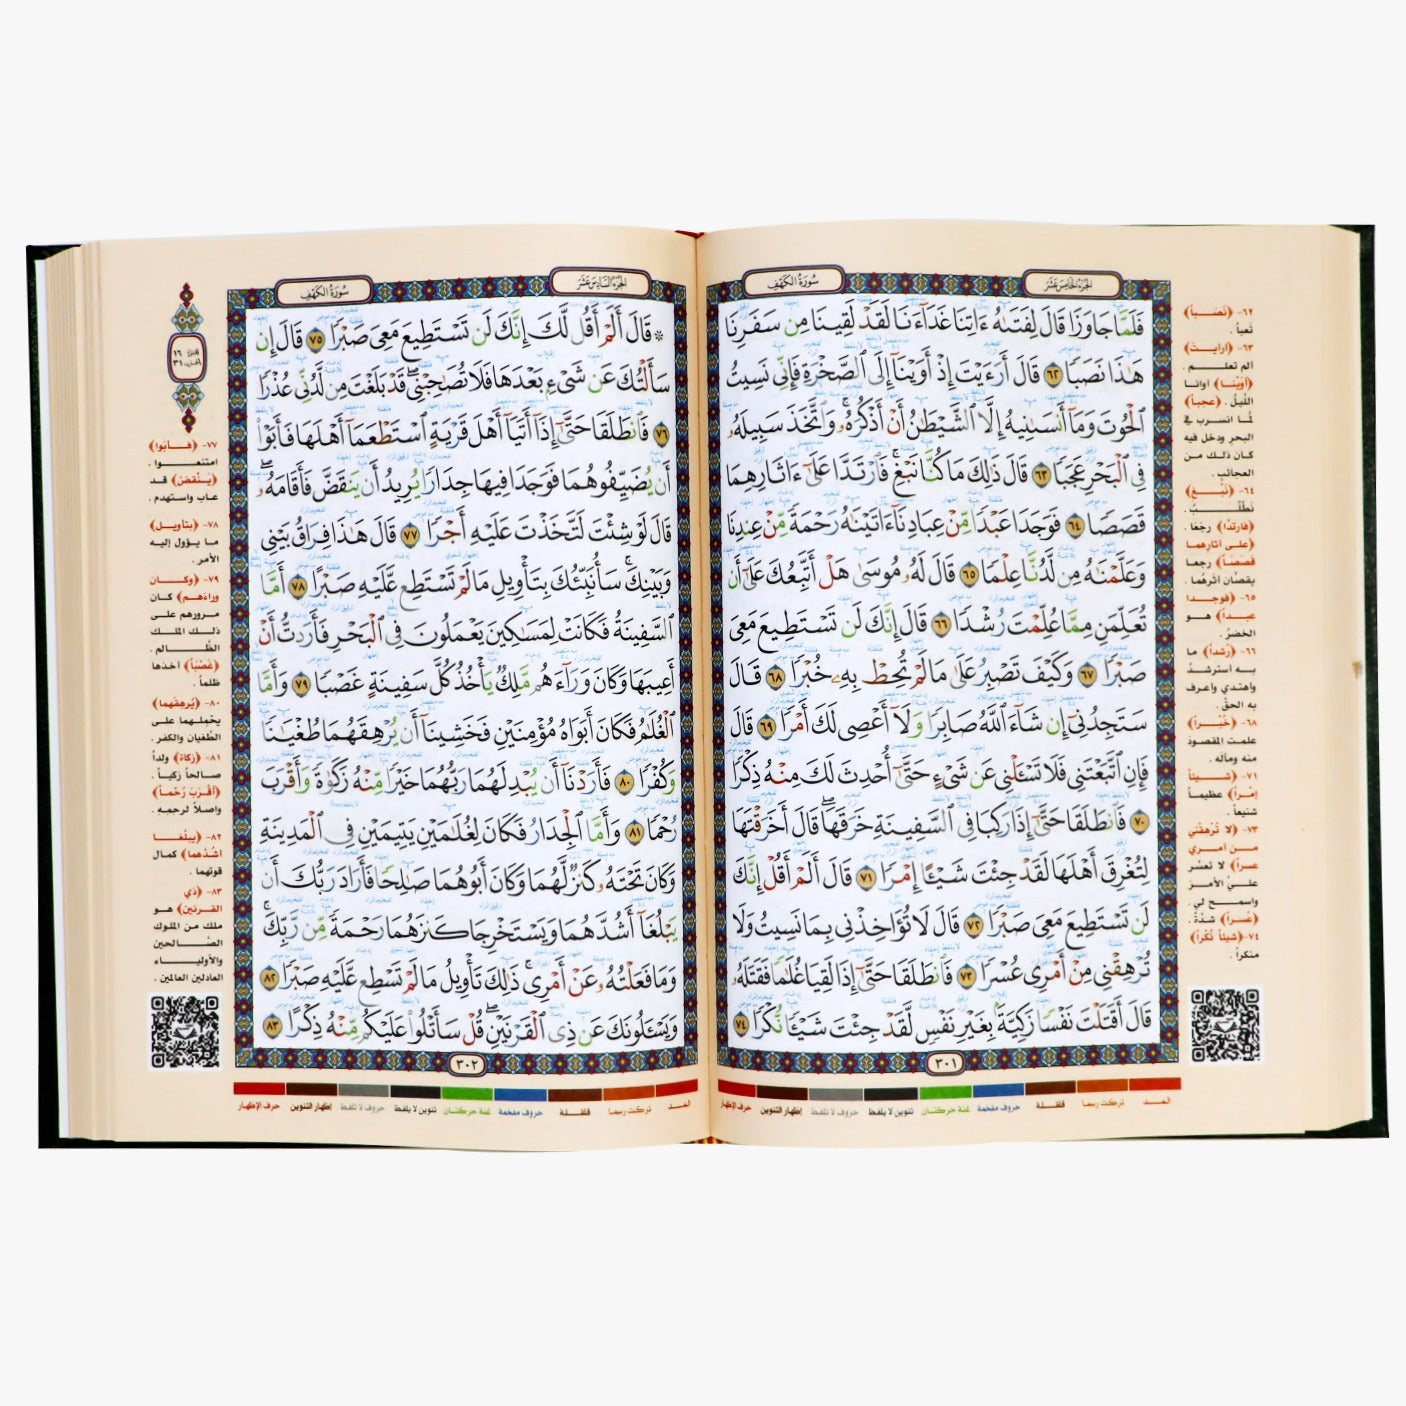 سُورَةُ الكَهْفِ
الجُزْءُ الخَامِسَ عَشَرَ
فَلَمَّا جَاوَزَا قَالَ لِفَتَىٰهُ ءَاتِنَا غَدَآءَنَا لَقَدْ لَقِينَا مِن سَفَرِنَا
هَٰذَا نَصَبًا ٦٢ قَالَ أَرَءَيْتَ إِذْ أَوَيْنَآ إِلَى ٱلصَّخْرَةِ فَإِنِّى نَسِيتُ
ٱلْحُوتَ وَمَآ أَنسَىٰنِيهُ إِلَّا ٱلشَّيْطَٰنُ أَنْ أَذْكُرَهُۥ ۚ وَٱتَّخَذَ سَبِيلَهُۥ
فِى ٱلْبَحْرِ عَجَبًا ٦٣ قَالَ ذَٰلِكَ مَا كُنَّا نَبْغِ ۚ فَٱرْتَدَّا عَلَىٰٓ ءَاثَارِهِمَا
قَصَصًا ٦٤ فَوَجَدَا عَبْدًا مِّنْ عِبَادِنَآ ءَاتَيْنَٰهُ رَحْمَةً مِّنْ عِندِنَا
وَعَلَّمْنَٰهُ مِن لَّدُنَّا عِلْمًا ٦٥ قَالَ لَهُۥ مُوسَىٰ هَلْ أَتَّبِعُكَ عَلَىٰٓ أَن
تُعَلِّمَنِ مِمَّا عُلِّمْتَ رُشْدًا ٦٦ قَالَ إِنَّكَ لَن تَسْتَطِيعَ مَعِىَ
صَبْرًا ٦٧ وَكَيْفَ تَصْبِرُ عَلَىٰ مَا لَمْ تُحِطْ بِهِۦ خُبْرًا ٦٨ قَالَ
سَتَجِدُنِىٓ إِن شَآءَ ٱللَّهُ صَابِرًا وَلَآ أَعْصِى لَكَ أَمْرًا ٦٩ قَالَ
فَإِنِ ٱتَّبَعْتَنِى فَلَا تَسْـَٔلْنِى عَن شَىْءٍ حَتَّىٰٓ أُحْدِثَ لَكَ مِنْهُ ذِكْرًا
٧٠ فَٱنطَلَقَا حَتَّىٰٓ إِذَا رَكِبَا فِى ٱلسَّفِينَةِ خَرَقَهَا ۖ قَالَ أَخَرَقْتَهَا
لِتُغْرِقَ أَهْلَهَا لَقَدْ جِئْتَ شَيْـًٔا إِمْرًا ٧١ قَالَ أَلَمْ أَقُلْ إِنَّكَ
لَن تَسْتَطِيعَ مَعِىَ صَبْرًا ٧٢ قَالَ لَا تُؤَاخِذْنِى بِمَا نَسِيتُ وَلَا
تُرْهِقْنِى مِنْ أَمْرِى عُسْرًا ٧٣ فَٱنطَلَقَا حَتَّىٰٓ إِذَا لَقِيَا غُلَٰمًا فَقَتَلَهُۥ
قَالَ أَقَتَلْتَ نَفْسًا زَكِيَّةًۢ بِغَيْرِ نَفْسٍ لَّقَدْ جِئْتَ شَيْـًٔا نُّكْرًا ٧٤
٣٠١
٦٢- ﴿نَصَباً﴾
تعباً .
٦٣- ﴿أرأيت﴾
ألم تعلم .
﴿أوَيْنا﴾ أوانا
الليلُ . ﴿عجباً﴾
لمّا انسرب في
البحر ودخل فيه
كان ذلك من
العجائب .
٦٤- ﴿نَبْغِ﴾
نَطْلُب .
﴿فارتدّا﴾ رجعا .
﴿على آثارهما
قصصاً﴾ رجعا
يقصّان أثرهُما .
٦٥- ﴿فوجدا
عبداً﴾ هو
الخضرُ .
٦٦- ﴿رُشداً﴾ ما
به أسترشدُ
وأهتدي وأعرف
به الحقّ .
٦٨- ﴿خُبْراً﴾
علمت المقصودَ
منه ومآله .
٧١- ﴿شيئاً
إمْراً﴾ عظيماً
شنيعاً .
٧٣- ﴿لا تُرْهقْني
من أمري
عسراً﴾ لا تعسّر
عليّ الأمرَ
واسمح لي .
﴿عُسراً﴾ شدّةً .
٧٤-﴿شيئاً نُكْراً﴾
منكراً .
المـد
تركت رسما
قلقلة
حروف مفخمة
غنة حركتان
تنوين لا يلفظ
حروف لا تلفظ
إظهار التنوين
حرف الإظهار
سُورَةُ الكَهْفِ
الجُزْءُ السَّادِسَ عَشَرَ
۞ قَالَ أَلَمْ أَقُل لَّكَ إِنَّكَ لَن تَسْتَطِيعَ مَعِىَ صَبْرًا ٧٥ قَالَ إِن
سَأَلْتُكَ عَن شَىْءٍۭ بَعْدَهَا فَلَا تُصَٰحِبْنِى ۖ قَدْ بَلَغْتَ مِن لَّدُنِّى عُذْرًا
٧٦ فَٱنطَلَقَا حَتَّىٰٓ إِذَآ أَتَيَآ أَهْلَ قَرْيَةٍ ٱسْتَطْعَمَآ أَهْلَهَا فَأَبَوْا۟
أَن يُضَيِّفُوهُمَا فَوَجَدَا فِيهَا جِدَارًا يُرِيدُ أَن يَنقَضَّ فَأَقَامَهُۥ ۖ
قَالَ لَوْ شِئْتَ لَتَّخَذْتَ عَلَيْهِ أَجْرًا ٧٧ قَالَ هَٰذَا فِرَاقُ بَيْنِى
وَبَيْنِكَ ۚ سَأُنَبِّئُكَ بِتَأْوِيلِ مَا لَمْ تَسْتَطِع عَّلَيْهِ صَبْرًا ٧٨ أَمَّا
ٱلسَّفِينَةُ فَكَانَتْ لِمَسَٰكِينَ يَعْمَلُونَ فِى ٱلْبَحْرِ فَأَرَدتُّ أَنْ
أَعِيبَهَا وَكَانَ وَرَآءَهُم مَّلِكٌ يَأْخُذُ كُلَّ سَفِينَةٍ غَصْبًا ٧٩ وَأَمَّا
ٱلْغُلَٰمُ فَكَانَ أَبَوَاهُ مُؤْمِنَيْنِ فَخَشِينَآ أَن يُرْهِقَهُمَا طُغْيَٰنًا
وَكُفْرًا ٨٠ فَأَرَدْنَآ أَن يُبْدِلَهُمَا رَبُّهُمَا خَيْرًا مِّنْهُ زَكَوٰةً وَأَقْرَبَ
رُحْمًا ٨١ وَأَمَّا ٱلْجِدَارُ فَكَانَ لِغُلَٰمَيْنِ يَتِيمَيْنِ فِى ٱلْمَدِينَةِ
وَكَانَ تَحْتَهُۥ كَنزٌ لَّهُمَا وَكَانَ أَبُوهُمَا صَٰلِحًا فَأَرَادَ رَبُّكَ أَن
يَبْلُغَآ أَشُدَّهُمَا وَيَسْتَخْرِجَا كَنزَهُمَا رَحْمَةً مِّن رَّبِّكَ ۚ
وَمَا فَعَلْتُهُۥ عَنْ أَمْرِى ۚ ذَٰلِكَ تَأْوِيلُ مَا لَمْ تَسْطِع عَّلَيْهِ صَبْرًا ٨٢
وَيَسْـَٔلُونَكَ عَن ذِى ٱلْقَرْنَيْنِ ۖ قُلْ سَأَتْلُوا۟ عَلَيْكُم مِّنْهُ ذِكْرًا ٨٣
٣٠٢
١٦
٣١
٧٧- ﴿فـأبَوْا﴾
امتنعـــوا .
﴿يَنْقضّ﴾ قد
عاب واستهدم .
٧٨- ﴿بتأويل﴾
ما يؤول إليه
الأمر .
٧٩- ﴿وكــان
وراءَهم﴾ كان
مرورهم على
ذلك الملك
الظّالم .
﴿غَصْباً﴾ أخذها
ظلماً .
٨٠- ﴿يُرهقَهما﴾
يحْملهما على
الطّغيان والكفر .
٨١- ﴿زكاةً﴾ ولداً
صالحاً زكياً .
﴿أقْرَبَ رُحْماً﴾
واصلاً لرحمِه .
٨٢- ﴿يبلغا
أشُدَّهما﴾ كمال
قوتهما .
٨٣- ﴿ذي
القرنين﴾ هو
ملك من الملوك
الصّالحين
والأولياء
العادلين العالمين .
المـد
تركت رسما
قلقلة
حروف مفخمة
غنة حركتان
تنوين لا يلفظ
حروف لا تلفظ
إظهار التنوين
حرف الإظهار